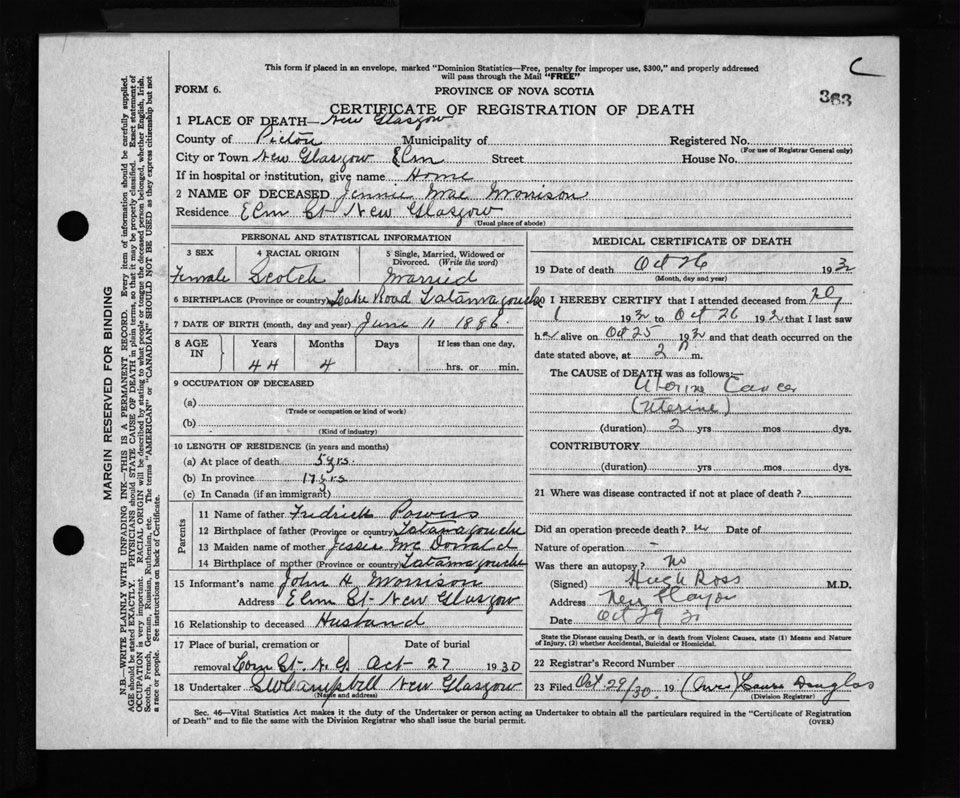 This form if placed in an envelope, marked "Dominion Statistics—Free, penalty for improper use, $300," and properly addressed
will pass through the Mail "FREE"
C
363
FORM 6.
PROVINCE OF NOVA SCOTIA
CERTIFICATE OF REGISTRATION OF DEATH
1 PLACE OF DEATH— New Glasgow
County of Pictou Municipality of Registered No.
(For use of Registrar General only)
City or Town New Glasgow Elm Street House No.
If in hospital or institution, give name Home
2 NAME OF DECEASED Jennie Mae Morrison
Residence Elm St New Glasgow
(Usual place of abode)
PERSONAL AND STATISTICAL INFORMATION
3 SEX 4 RACIAL ORIGIN 5 Single, Married, Widowed or
Divorced. (Write the word)
Female Scotch Married
6 BIRTHPLACE (Province or country) Lake Road Tatamagouche
7 DATE OF BIRTH (month, day and year) June 11 1886.
8 AGE IN Years Months Days If less than one day,
44 4 hrs. or min.
9 OCCUPATION OF DECEASED
(a)
(Trade or occupation or kind of work)
(b)
(Kind of industry)
10 LENGTH OF RESIDENCE (in years and months)
(a) At place of death 5 yrs.
(b) In province yrs
(c) In Canada (if an immigrant)
Parents
11 Name of father Fredrick Powers
12 Birthplace of father (Province or country) Tatamagouche
13 Maiden name of mother Jessie McDonald
14 Birthplace of mother (Province or country) Tatamagouche
15 Informant's name John H. Morrison
Address Elm St New Glasgow
16 Relationship to deceased Husband
17 Place of burial, cremation or Date of burial
removal St. N. G. Oct 27 1930
18 Undertaker Campbell New Glasgow
(Name and address)
MEDICAL CERTIFICATE OF DEATH
19 Date of death Oct 26 193
(Month, day and year)
20 I HEREBY CERTIFY that I attended deceased from
193 to Oct 26 193 that I last saw
her alive on Oct 25 193 and that death occurred on the
date stated above, at 2 m.
The CAUSE of DEATH was as follows:
Uterine Cancer
(Uterine)
(duration) 2 yrs mos dys.
CONTRIBUTORY
(duration) yrs mos dys.
21 Where was disease contracted if not at place of death?
Did an operation precede death? no Date of
Nature of operation -
Was there an autopsy? No
(Signed) Hugh Ross M.D.
Address New Glasgow
Date Oct 29 30
State the Disease causing Death, or in death from Violent Causes, state (1) Means and Nature
of Injury, (2) whether Accidental, Suicidal or Homicidal.
22 Registrar's Record Number
23 Filed Oct 29/30. 19 Laura Douglas
(Division Registrar)
Sec. 46—Vital Statistics Act makes it the duty of the Undertaker or person acting as Undertaker to obtain all the particulars required in the "Certificate of Registration
of Death" and to file the same with the Division Registrar who shall issue the burial permit.
(OVER)
MARGIN RESERVED FOR BINDING
N.B.—WRITE PLAINLY WITH UNFADING INK—THIS IS A PERMANENT RECORD. Every item of information should be carefully supplied.
AGE should be stated EXACTLY. PHYSICIANS should STATE CAUSE OF DEATH in plain terms, so that it may be properly classified. Exact statement of
OCCUPATION is very important. RACIAL ORIGIN will be described by stating to what people or tongue the deceased person belonged, whether English, Irish,
Scotch, French, German, Russian, Ruthenian, etc. The terms "AMERICAN" or "CANADIAN" SHOULD NOT BE USED as they express citizenship but not
a race or people. See instructions on back of Certificate.